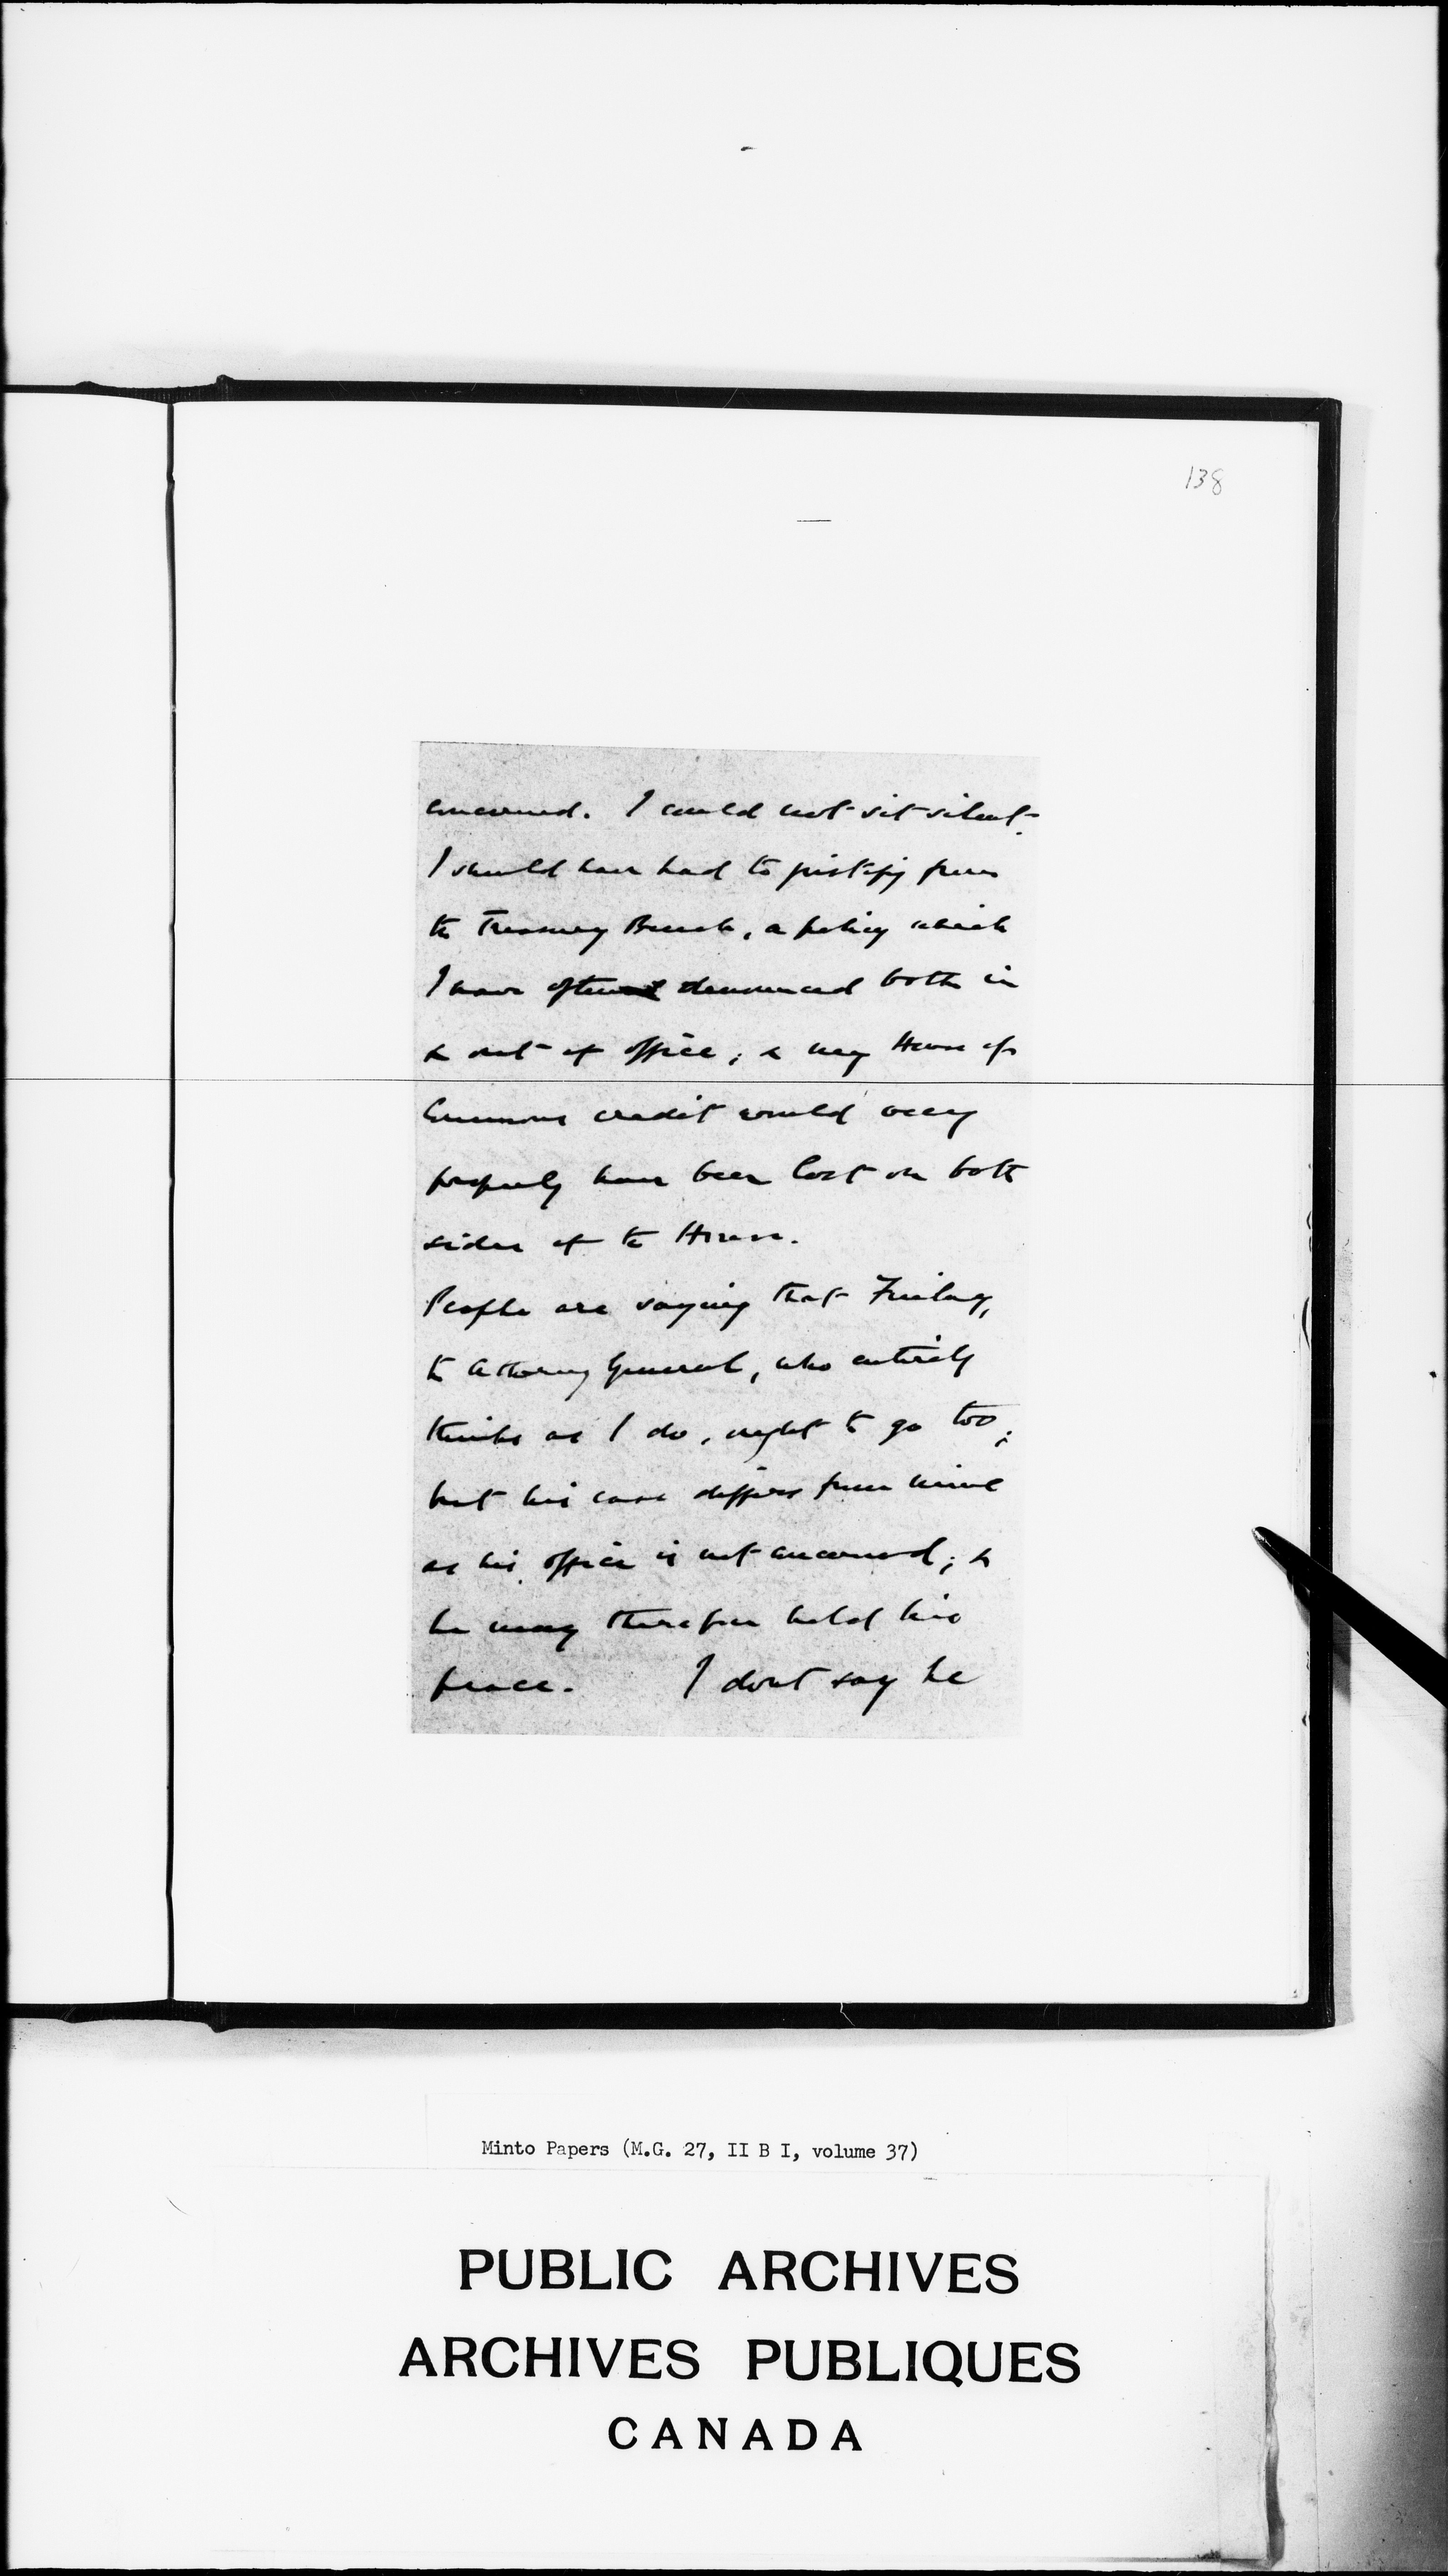 138
concerned. I could not sit silent.
I should have had to justify from
the Treasury Bench, a policy which
I have often denounced both in
& out of office; & my House of
Commons credit would very
properly have been lost on both
sides of the House.
People are saying that Finlay,
the Attorney General, who entirely
thinks as I do, ought to go too;
but his case differs from mine
as his office is not concerned; &
he may therefore hold his
peace. I dont say he
Minto Papers (M.G. 27, II B I, volume 37)
PUBLIC ARCHIVES
ARCHIVES PUBLIQUES
CANADA